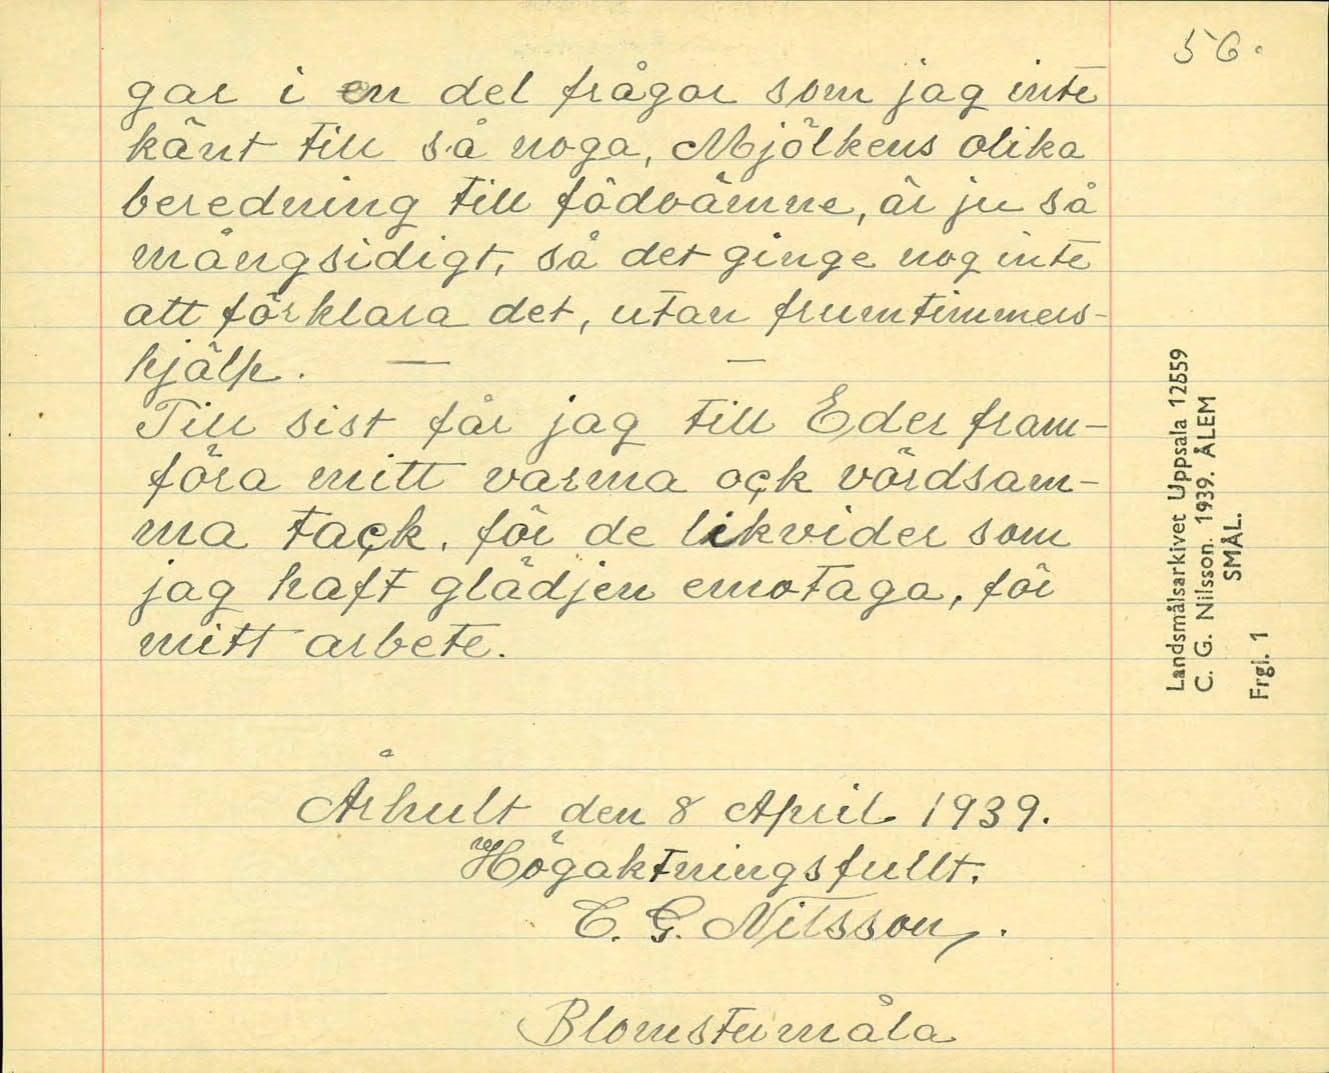 56.
gar i en del frågor som jag inte
känt till så noga, Mjölkens olika
beredning till födoämne, är ju så
mångsidigt, så det ginge nog inte
att förklara det, utan fruntimmers-
hjälp. — —
Till sist får jag till Eder fram-
föra mitt varma ock vördsam-
ma tack, för de likvider som
jag haft glädjen emotaga, för
mitt arbete.
Århult den 8 April 1939.
Högaktningsfullt.
C. G. Nilsson.
Blomstermåla
Landsmålsarkivet Uppsala 12559
C. G. Nilsson. 1939. ÅLEM
SMÅL.
Frgl. 1